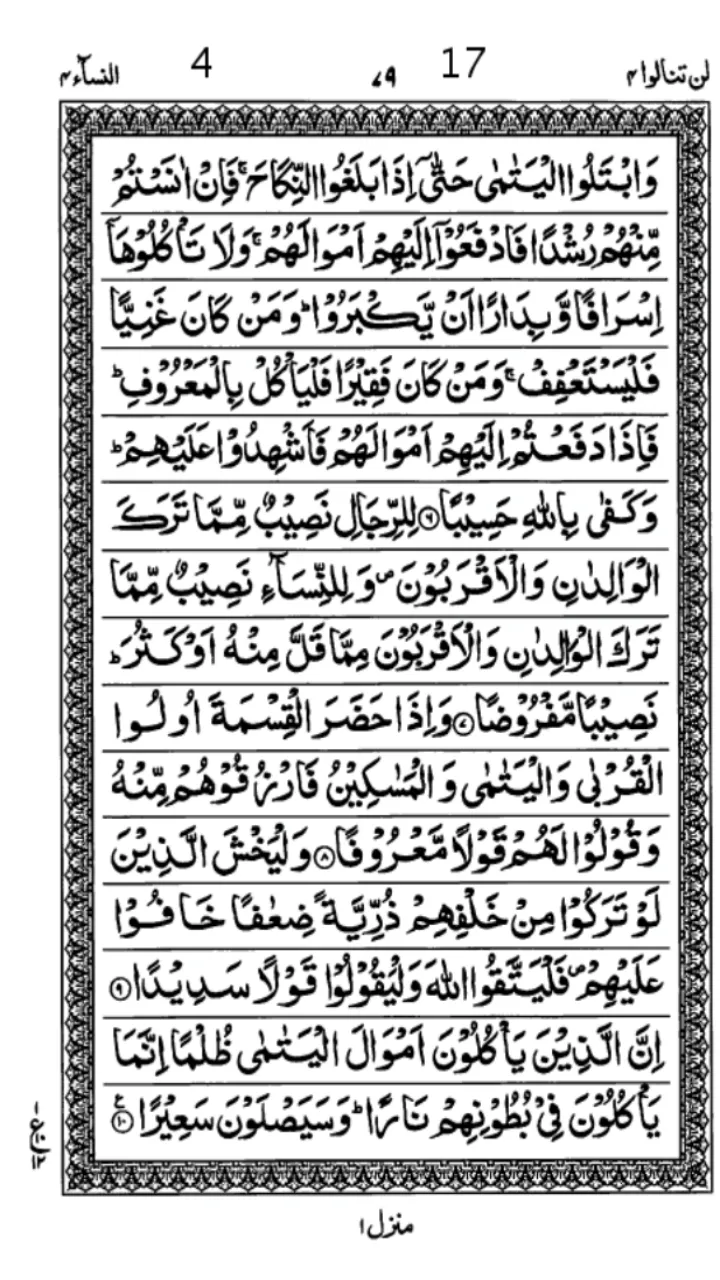 لن تنالوا ۴ 17 ۷۹ 4 النسآء ۴
وَابْتَلُوا الْيَتٰمٰى حَتّٰٓى اِذَا بَلَغُوا النِّكَاحَ ۚ فَاِنْ اٰنَسْتُمْ
مِّنْهُمْ رُشْدًا فَادْفَعُوْٓا اِلَيْهِمْ اَمْوَالَهُمْ ۚ وَلَا تَاْكُلُوْهَآ
اِسْرَافًا وَّبِدَارًا اَنْ يَّكْبَرُوْا ؕ وَمَنْ كَانَ غَنِيًّا
فَلْيَسْتَعْفِفْ ۚ وَمَنْ كَانَ فَقِيْرًا فَلْيَاْكُلْ بِالْمَعْرُوْفِ ؕ
فَاِذَا دَفَعْتُمْ اِلَيْهِمْ اَمْوَالَهُمْ فَاَشْهِدُوْا عَلَيْهِمْ ؕ
وَكَفٰى بِاللّٰهِ حَسِيْبًا ۝۶ لِلرِّجَالِ نَصِيْبٌ مِّمَّا تَرَكَ
الْوَالِدٰنِ وَالْاَقْرَبُوْنَ ۪ وَلِلنِّسَآءِ نَصِيْبٌ مِّمَّا
تَرَكَ الْوَالِدٰنِ وَالْاَقْرَبُوْنَ مِمَّا قَلَّ مِنْهُ اَوْ كَثُرَ ؕ
نَصِيْبًا مَّفْرُوْضًا ۝۷ وَاِذَا حَضَرَ الْقِسْمَةَ اُولُوا
الْقُرْبٰى وَالْيَتٰمٰى وَالْمَسٰكِيْنُ فَارْزُقُوْهُمْ مِّنْهُ
وَقُوْلُوْا لَهُمْ قَوْلًا مَّعْرُوْفًا ۝۸ وَلْيَخْشَ الَّذِيْنَ
لَوْ تَرَكُوْا مِنْ خَلْفِهِمْ ذُرِّيَّةً ضِعٰفًا خَافُوْا
عَلَيْهِمْ ۪ فَلْيَتَّقُوا اللّٰهَ وَلْيَقُوْلُوْا قَوْلًا سَدِيْدًا ۝۹
اِنَّ الَّذِيْنَ يَاْكُلُوْنَ اَمْوَالَ الْيَتٰمٰى ظُلْمًا اِنَّمَا
يَاْكُلُوْنَ فِيْ بُطُوْنِهِمْ نَارًا ؕ وَسَيَصْلَوْنَ سَعِيْرًا ۝۱۰ ع
منزل ۱